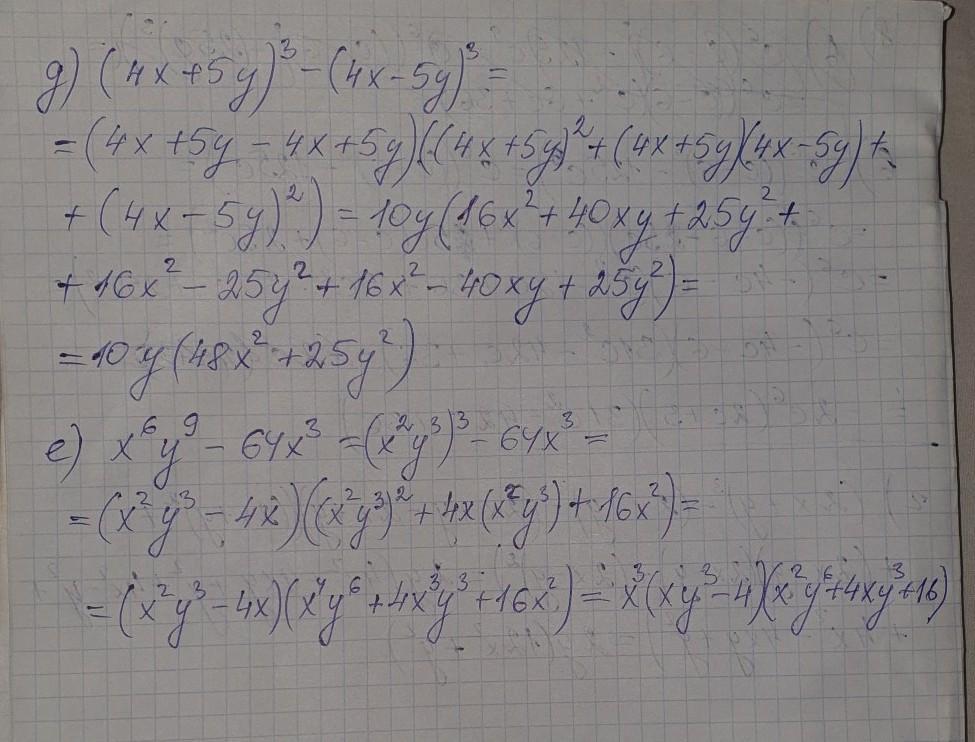 д) (4x+5y)³-(4x-5y)³=
=(4x+5y-4x+5y)((4x+5y)²+(4x+5y)(4x-5y)+
+(4x-5y)²)=10y(16x²+40xy+25y²+
+16x²-25y²+16x²-40xy+25y²)=
=10y(48x²+25y²)
е) x⁶y⁹-64x³=(x²y³)³-64x³=
=(x²y³-4x)((x²y³)²+4x(x²y³)+16x²)=
=(x²y³-4x)(x⁴y⁶+4x³y³+16x²)=x³(xy³-4)(x²y⁶+4xy³+16)